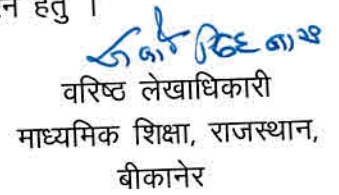 हेतु ।
वरिष्ठ लेखाधिकारी
माध्यमिक शिक्षा, राजस्थान,
बीकानेर